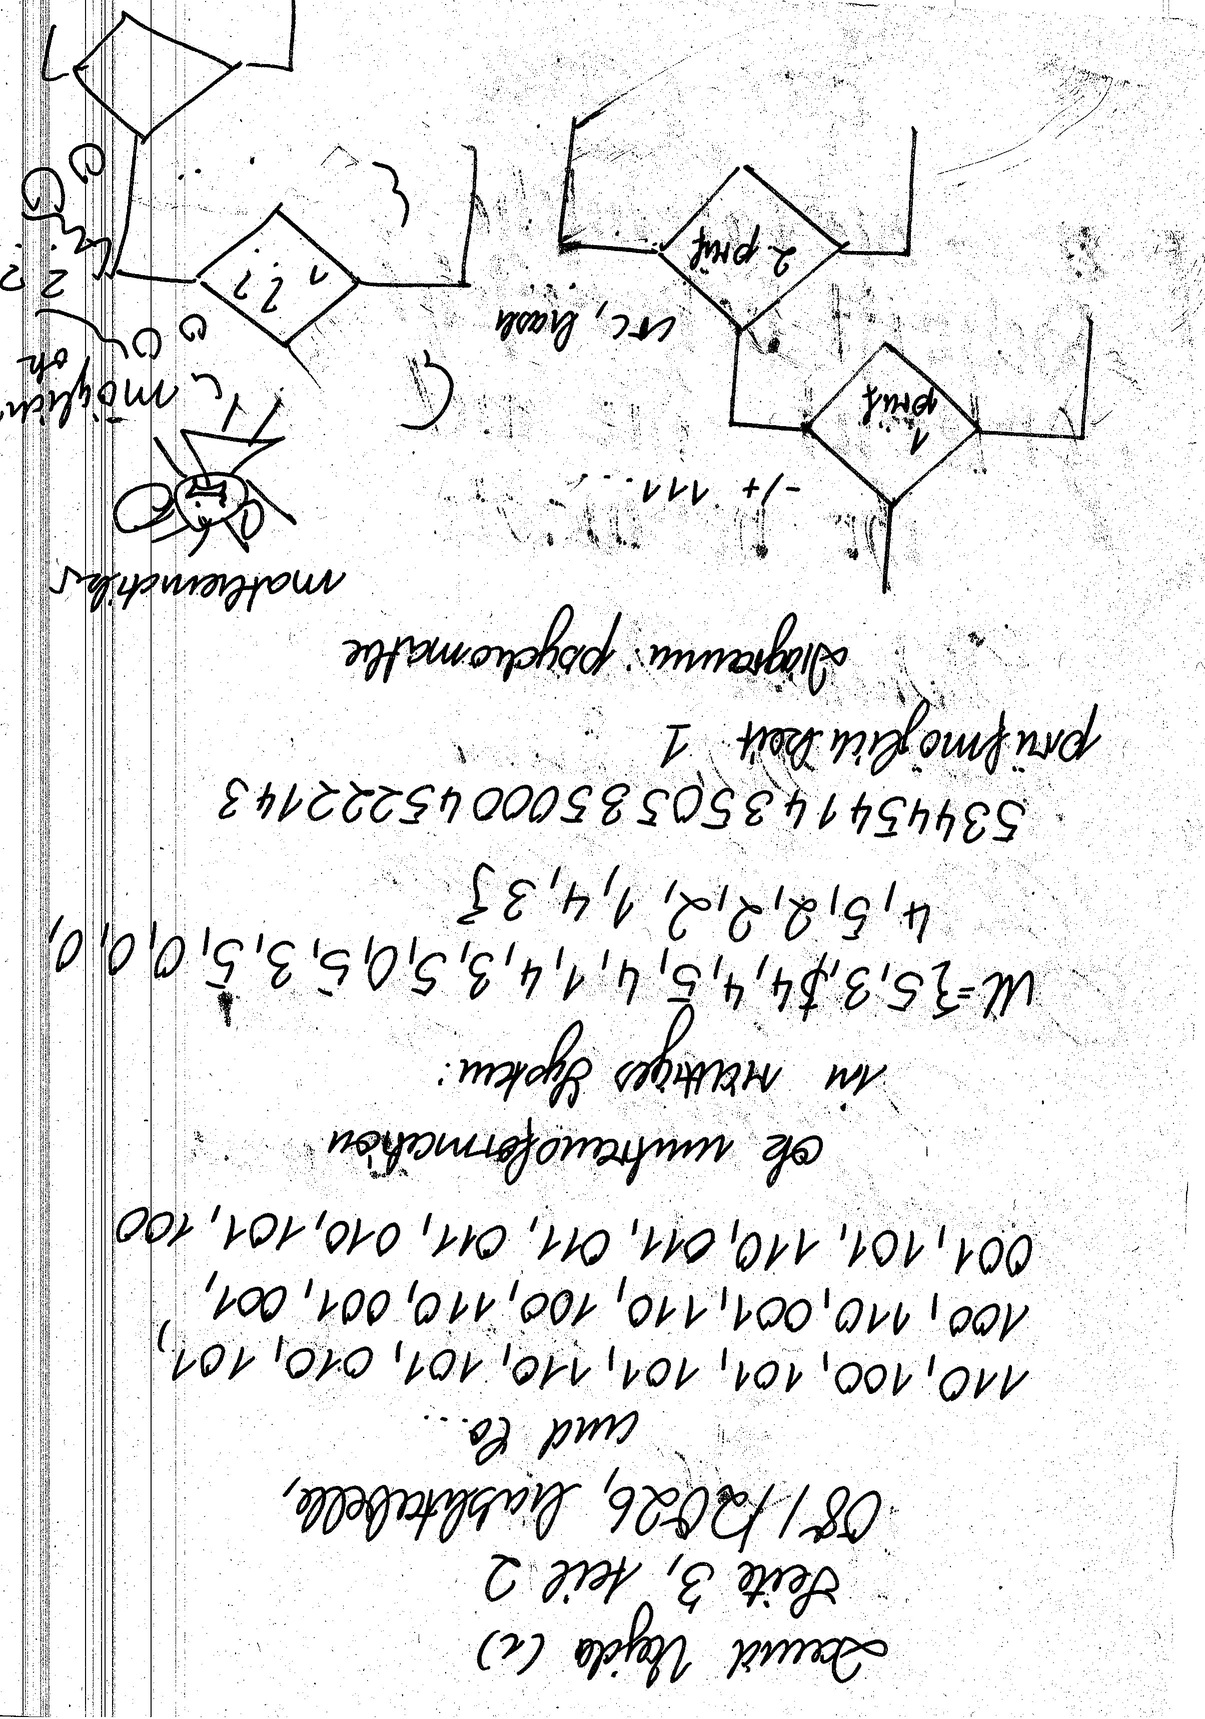 Seite 3, teil 2
08//2026, hashtabelle,
und Co...
110, 100, 101, 101, 110, 101, 010, 101,
100, 110, 001, 110, 100, 110, 001, 001,
001, 101, 110, 011, 011, 011, 010, 101, 100
ok umtransformation
in System:
M={5, 3, 4, 4, 5, 4, 1, 4, 3, 5, 0, 5, 3, 5, 0, 0, 0,
4, 5, 2, 2, 2, 1, 4, 3}
5344541435053500045222143
prüfmöglichkeit 1
diagramm: psychomathe
mathematiker
-/+ 111....
1 prüf
möglich
ok
crc, hash
2 prüf
1 ? ?
2 ?